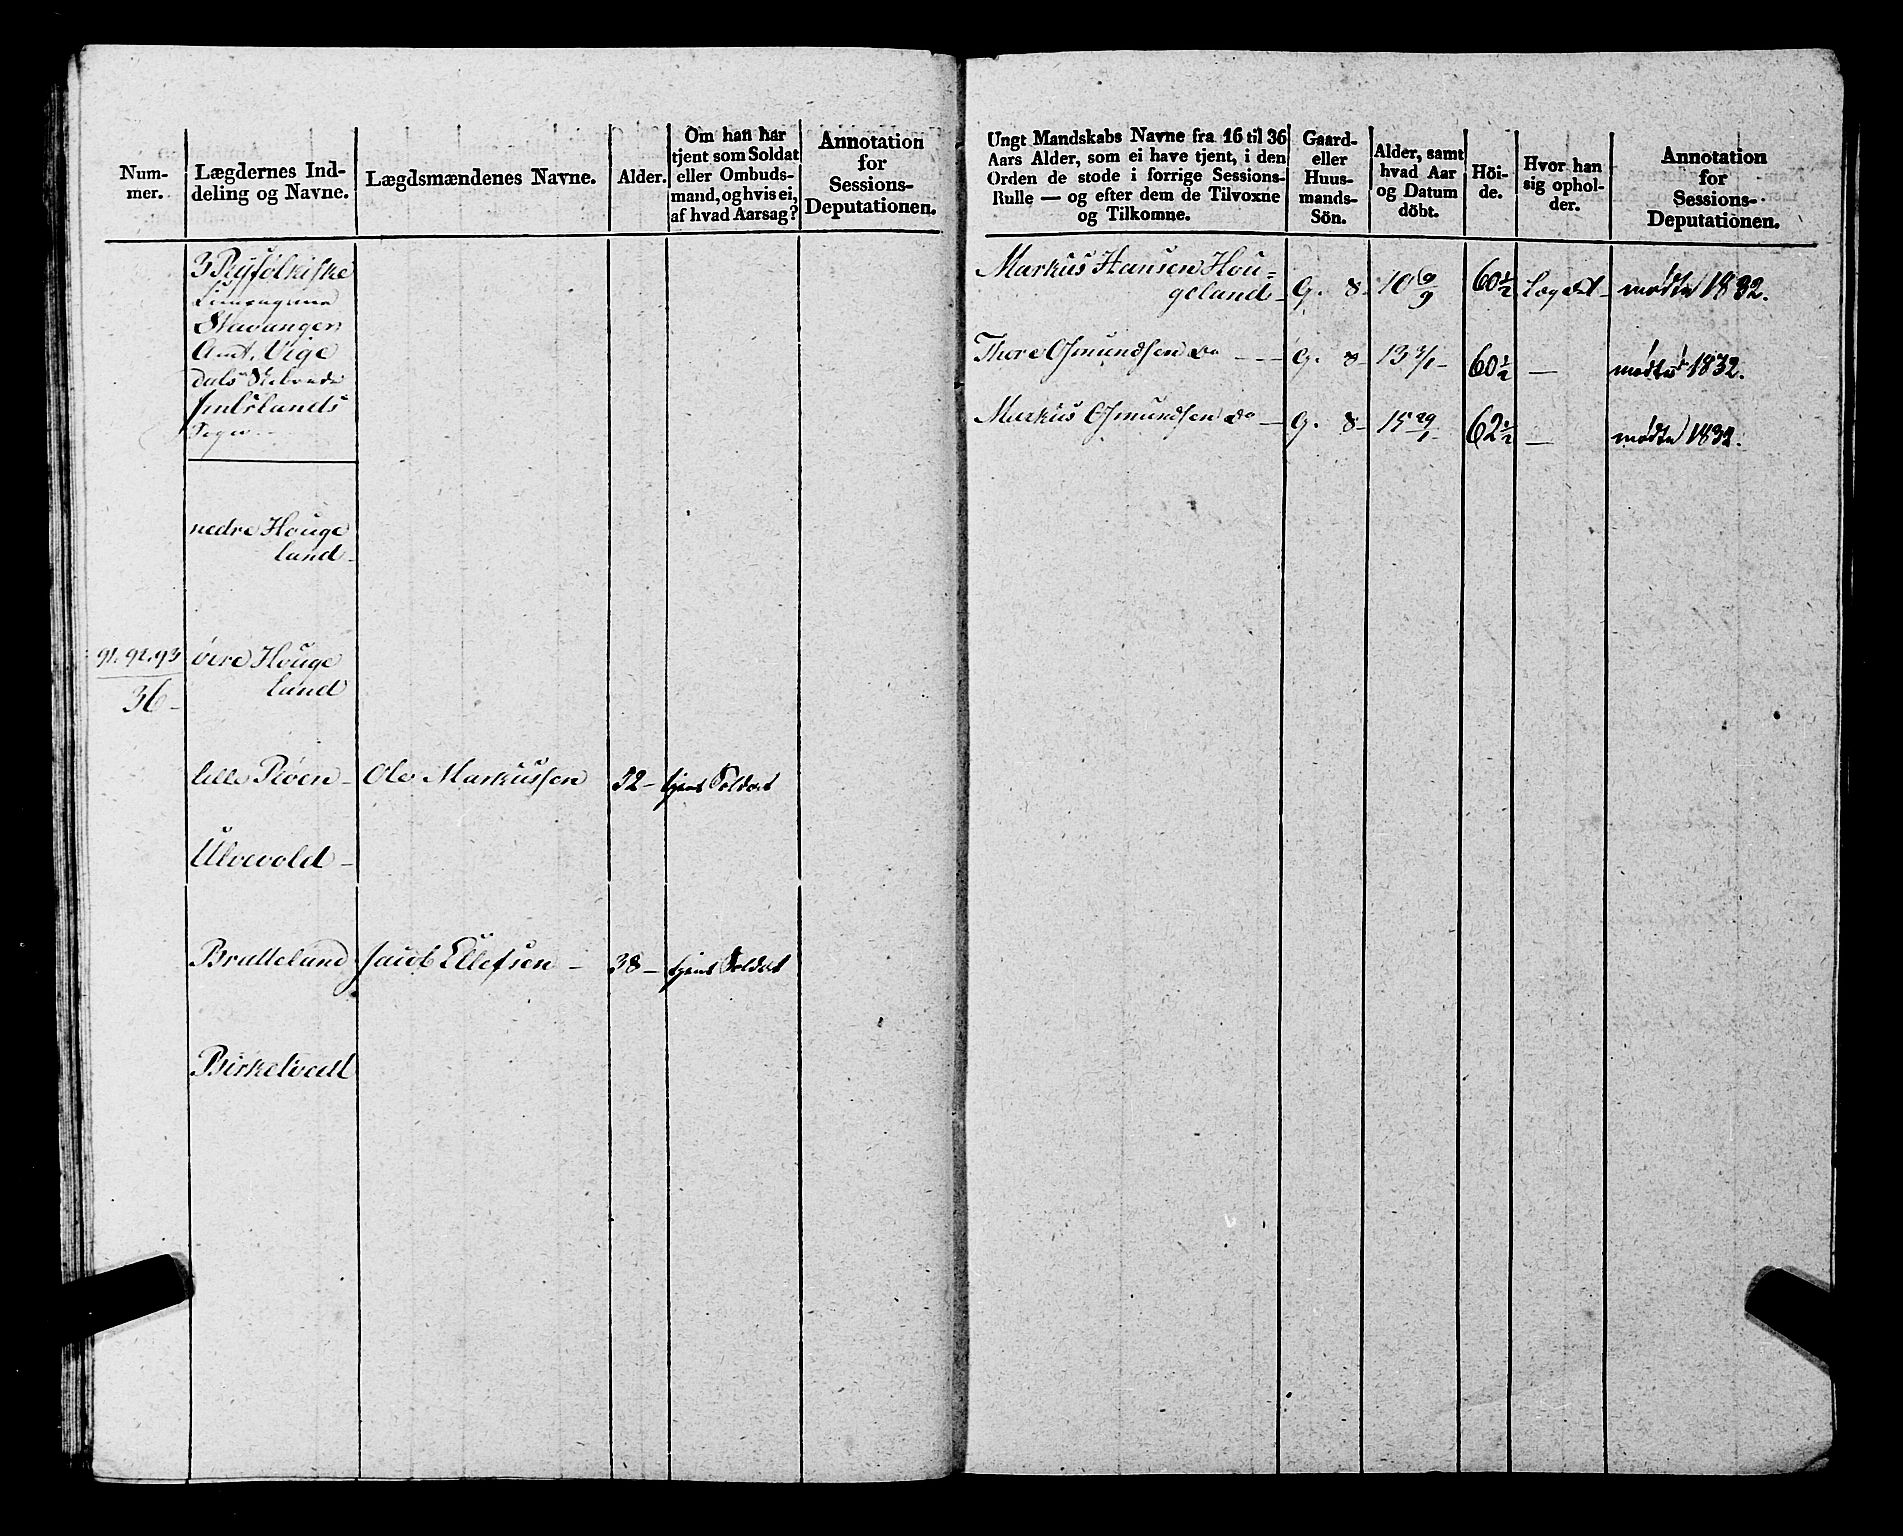 Num-
mer.
Lægdernes Ind-
deling og Navne.
Lægdsmændenes Navne.
Alder.
Om han har
tjent som Soldat
eller Ombuds-
mand, og hvis ei,
af hvad Aarsag?
Annotation
for
Sessions-
Deputationen.
3 Ryfølkiske
Stavanger
Amt, Vige
dals
Imslands
Sogn
nedre Houge
land
91. 92. 93
36
övre Houge
land
lille Röen Ole Markussen 32 tjent Soldat
Ulvevold
Bratteland Jacob Ellefsen 38 tjent Soldat
Birketvedt
Ungt Mandskabs Navne fra 16 til 36
Aars Alder, som ei have tjent, i den
Orden de stode i forrige Sessions-
Rulle — og efter dem de Tilvoxne
og Tilkomne.
Gaard-
eller
Huus-
mands-
Sön.
Alder, samt
hvad Aar
og Datum
döbt.
Höi-
de.
Hvor han
sig ophol-
der.
Annotation
for
Sessions-
Deputationen.
Markus Hansen Hou=
geland G. 8 10 6/9 60 1/2 Lægdet mødte 1832.
Thore Osmundsen do G. 8 13 3/1 60 1/2 — mødte 1832.
Markus Osmundsen do G. 8 15 29/1 62 1/2 — mødte 1832.